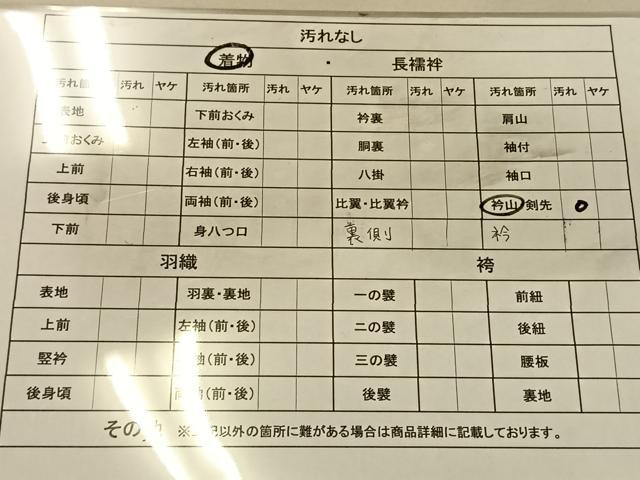 汚れなし
着物 ・ 長襦袢
汚れ箇所 汚れ ヤケ 汚れ箇所 汚れ ヤケ 汚れ箇所 汚れ ヤケ 汚れ箇所 汚れ ヤケ
表地 下前おくみ 衿裏 肩山
上前おくみ 左袖(前・後) 胴裏 袖付
上前 右袖(前・後) 八掛 袖口
後身頃 両袖(前・後) 比翼・比翼衿 衿山・剣先
下前 身八つ口 裏側 衿
羽織 袴
表地 羽裏・裏地 一の襞 前紐
上前 左袖(前・後) 二の襞 後紐
竪衿 袖(前・後) 三の襞 腰板
後身頃 両袖(前・後) 後襞 裏地
その他 ※上記以外の箇所に難がある場合は商品詳細に記載しております。